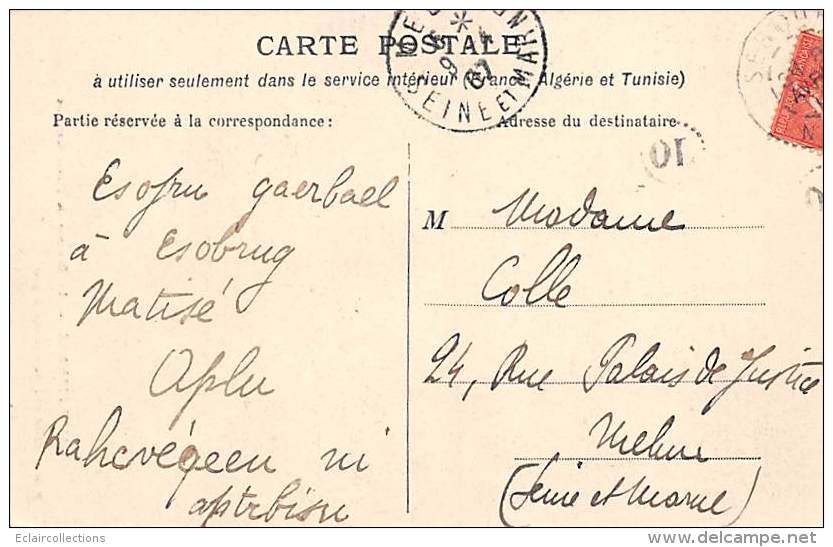 CARTE POSTALE
à utiliser seulement dans le service intérieur (France, Algérie et Tunisie)
Partie réservée à la correspondance:
Adresse du destinataire
SEINE ET MAR
OL
Esofru gaerbael
à Esobrug
Matisé
Aplu
ni
M Madame
Colle
24, Rue Palais de Justice
Melun
(Seine et Marne)
Eclaircollections
delcampe.net